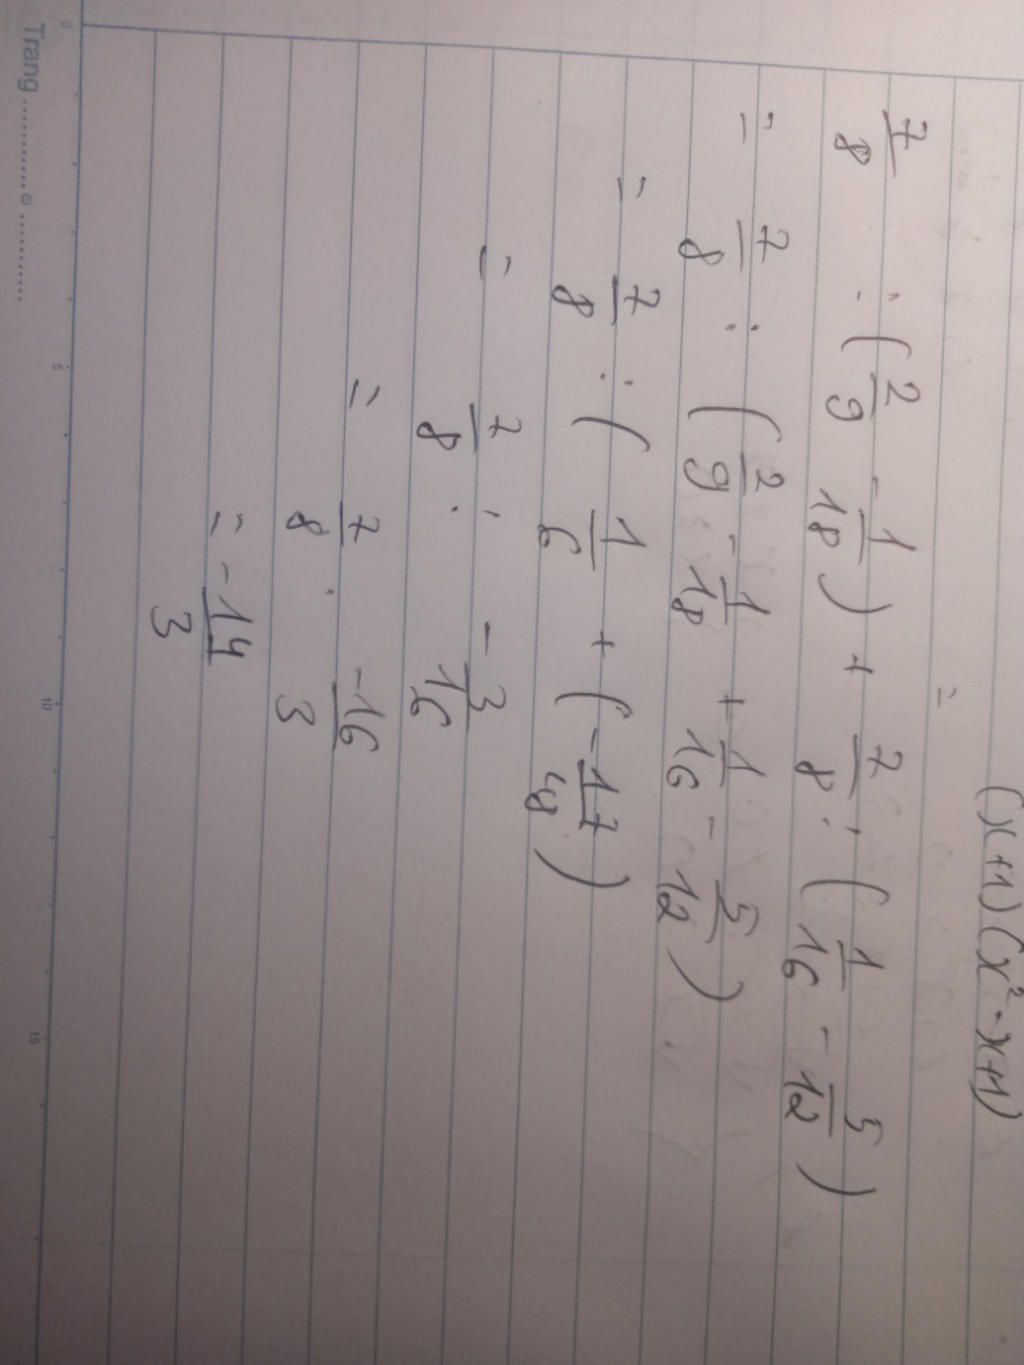 (x+1)(x²-x+1)
=
7/8 : (2/9 - 1/18) + 7/8 : (1/16 - 5/12)
= 7/8 : (2/9 - 1/18 + 1/16 - 5/12)
= 7/8 : (1/6 + (-17/48)
= 7/8 : -3/16
= 7/8 . -16/3
= -14/3
Trang
0 5 10 15